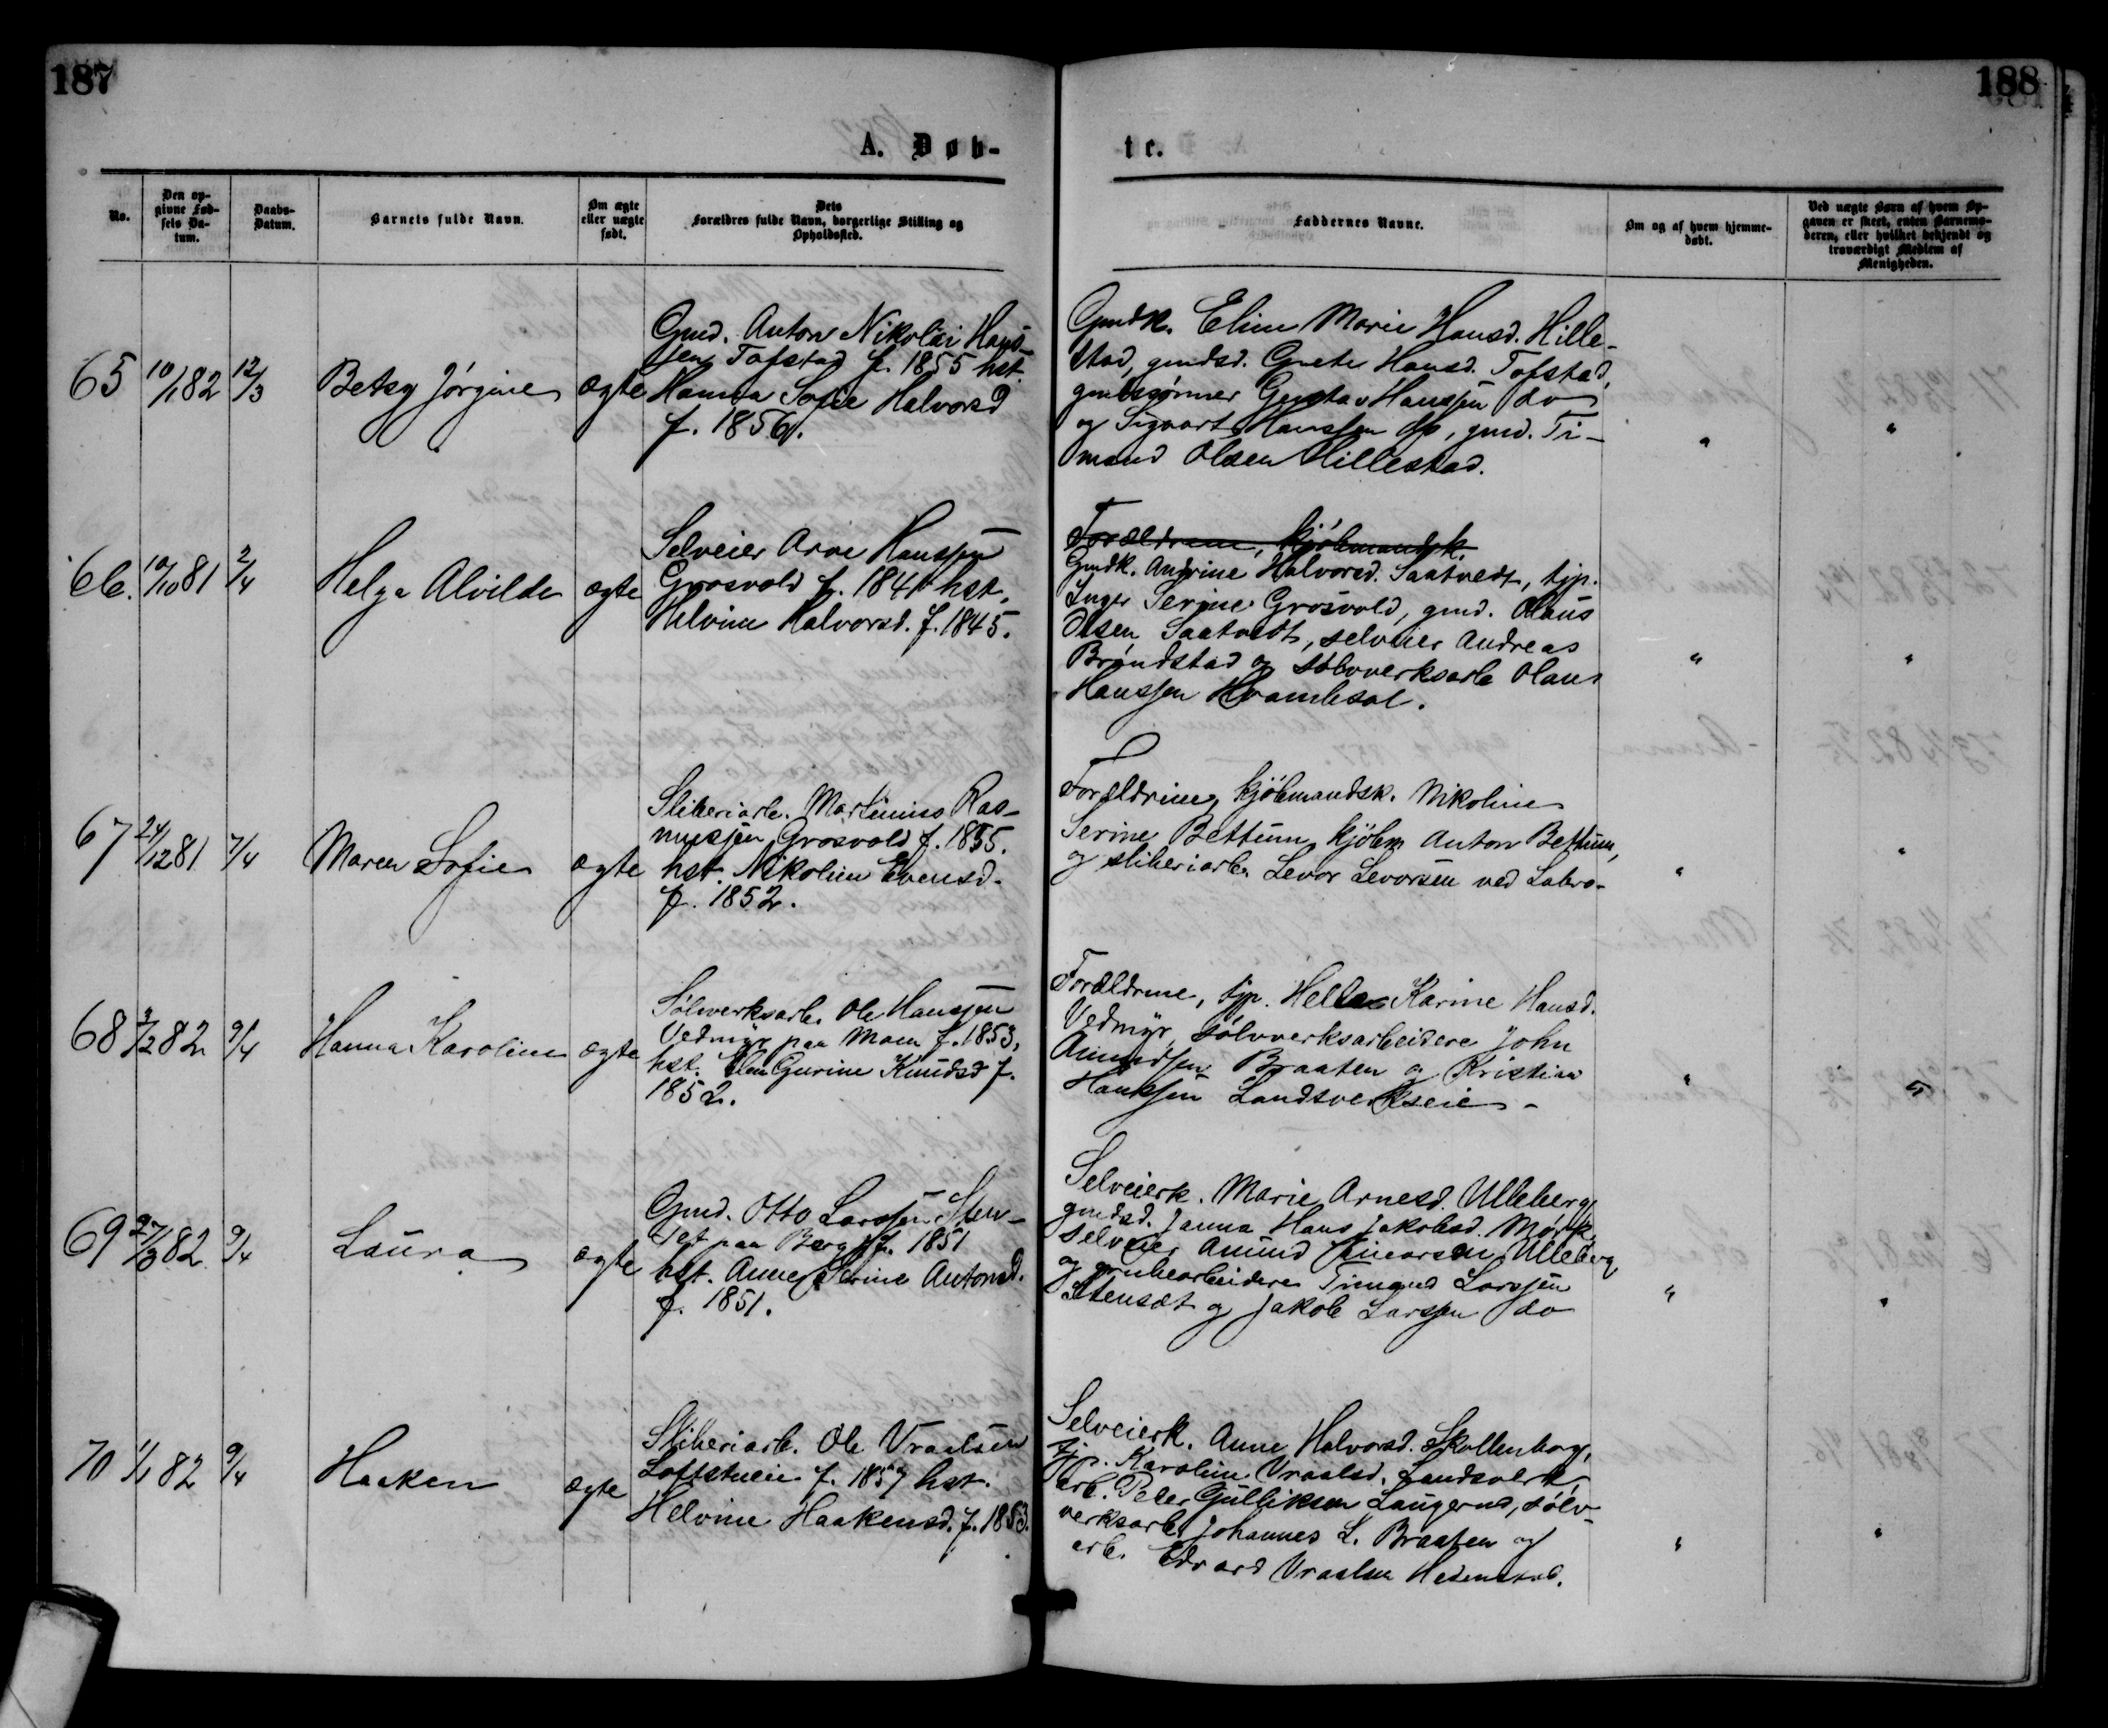 187
188
A. Døb-
te.
No.
Den op-
givne Fød-
sels Da-
tum.
Daabs-
Datum.
Barnets fulde Navn.
Om ægte
eller uægte
født.
Dets
Forældres fulde Navn, borgerlige Stilling og
Opholdssted.
Faddernes Navne.
Om og af hvem hjemme-
døbt.
Ved uægte Børn af hvem Op-
gaven er skeet, enten Barnemo-
deren, eller hvilket bekjendt og
troværdigt Medlem af
Menigheden.
65 10/1 82 12/3 Betsy Jørgine ægte
Gmd. Anton Nikolai Hans-
sen Tofstad f. 1855 hst.
Hanna Sofie Halvorsd
f. 1856.
Gmdk. Eline Marie Hansd. Hille-
stad, gmdsd. Grete Hansd. Tofstad,
gmdssønner Gustav Hanssen do
og Sigvart Hanssen do, gmd. Ti-
mand Olsen Hillestad.
" "
66. 10/10 81 2/4 Helga Alvilde ægte
Selveier Arve Hanssen
Grosvold f. 1841 hst.
Helvine Halvorsd. f. 1845.
Forældrene, kjøbmandsk.
Gmdk. Andrine Halvorsd. Saatvedt, tjp.
Inger Serine Grosvold, gmd. Olaus
Olsen Saatvedt, selveier Andreas
Brøndstad og sølvverksarb Olaus
Hanssen Kvambsal.
" "
67 24/12 81 7/4 Maren Sofie ægte
Sliberiarb. Martinius Ras-
mussen Grosvold f. 1855.
hst. Nikoline Evensd.
f. 1852.
Forældrene, kjøbmandsk. Nikoline
Serine Bettum, kjøbm Anton Bettum,
og sliberiarb. Levor Levorsen ved Labro-
" "
68 3/2 82 9/4 Hanna Karoline ægte
Sølvverksarb. Ole Hanssen
Vedmyr paa Moen f. 1853,
hst. Elen Gurine Knudsd f.
1852.
Forældrene, tjp. Helle Karine Hansd.
Vedmyr, sølvverksarbeidere John
Amundsen Braaten og Kristian
Hanssen Landsverkseie -
" "
69 27/3 82 9/4 Laura ægte
Gmd. Otto Larssen Sten-
set paa Berg f. 1851
hst. Anne Serine Antonsd.
f. 1851.
Selveierk. Marie Arnesd. Ulleberg,
gmdsd. Janna Hans Jakobsd. Mørk,
selveier Amund Ulleberg
og grubearbeidere Timand Larssen
Stensæt og Jakob Larssen do
" "
70 1/1 82 9/4 Haaken ægte
Sliberiarb. Ole Vraalsen
Loftstueie f. 1857 hst.
Helvine Haakensd. f. 1853.
Selveierk. Anne Halvorsd. Skollenborg,
tjp. Karoline Vraalsd. Landsverk,
arb. Peder Gulliksen Laugerud, sølv-
verksarb. Johannes L. Braaten og
arb. Edvard Vraalsen Hedenstad.
" "